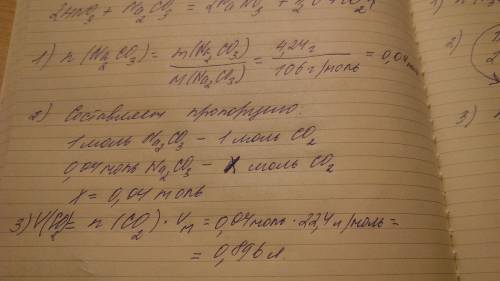 2HNO3 + Na2CO3 = 2NaNO3 + H2O + CO2↑
1) n (Na2CO3) = m(Na2CO3) / M(Na2CO3) = 4,24 г / 106 г/моль = 0,04 моль
2) Составляем пропорцию:
1 моль Na2CO3 – 1 моль CO2
0,04 моль Na2CO3 – x моль CO2
x = 0,04 моль
3) V(CO2) = n (CO2) · Vм = 0,04 моль · 22,4 л/моль =
= 0,896 л.
1)
2)
3)